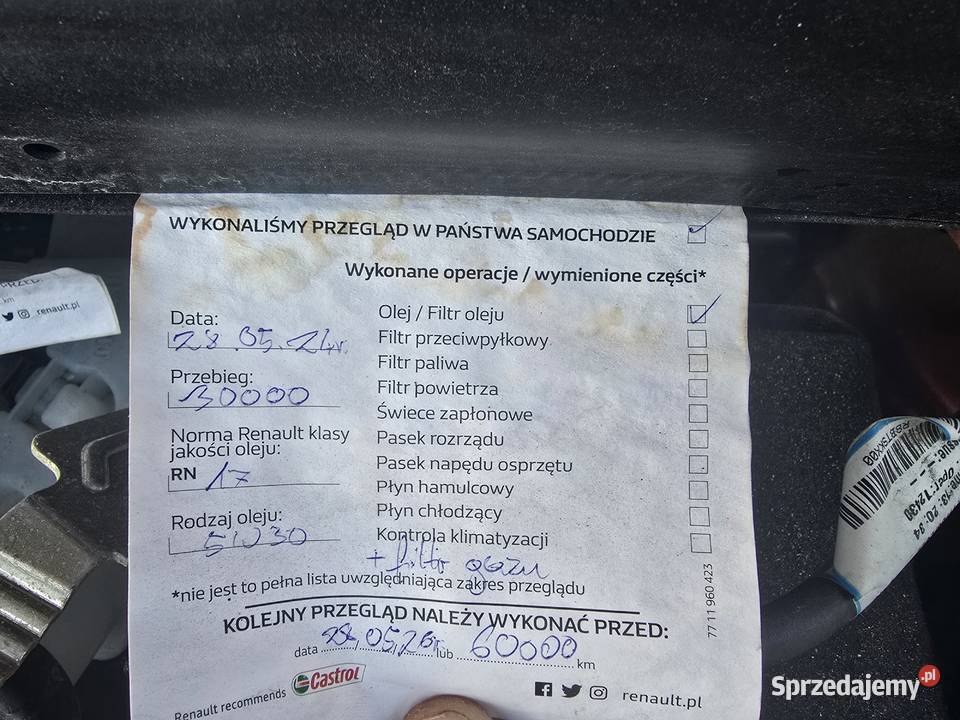 WYKONALIŚMY PRZEGLĄD W PAŃSTWA SAMOCHODZIE
Wykonane operacje / wymienione części*
Data:
28.05.24r.
Przebieg:
30000
Norma Renault klasy
jakości oleju:
RN 17
Rodzaj oleju:
5W30
Olej / Filtr oleju
Filtr przeciwpyłkowy
Filtr paliwa
Filtr powietrza
Świece zapłonowe
Pasek rozrządu
Pasek napędu osprzętu
Płyn hamulcowy
Płyn chłodzący
Kontrola klimatyzacji
+ filtr gazu
*nie jest to pełna lista uwzględniająca zakres przeglądu
KOLEJNY PRZEGLĄD NALEŻY WYKONAĆ PRZED:
data 28.05.26r. lub 60000 km
Renault recommends Castrol
renault.pl
77 11 960 423
km
renault.pl
Oper:12430
Sprzedajemy.pl